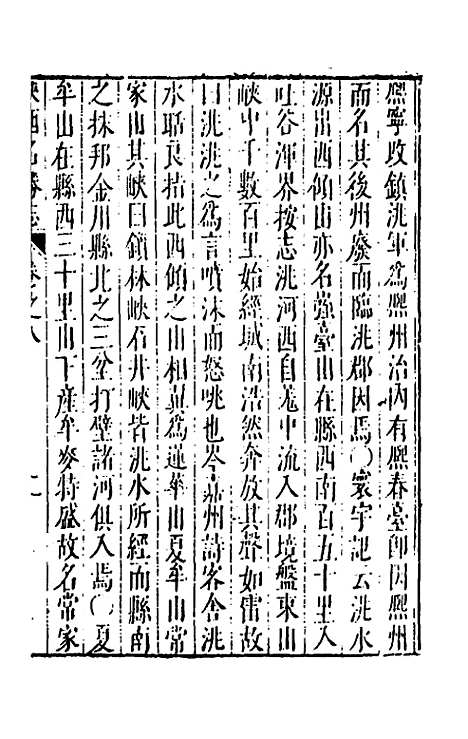 熙寧改鎮洮軍爲熙州治內有熙春臺卽因熙州
而名其後州廢而臨洮郡因焉○寰宇記云洮水
源出西傾山亦名強臺山在縣西南百五十里入
吐谷渾界按志洮河西自羌中流入郡境盤束山
峽中千數百里始經城南浩然奔放其聲如雷故
曰洮洮之爲言噴沫而怒咷也岑嘉州詩客舍洮
水聒良括此西傾之山相冀爲蓮華山夏牟山常
家山其峽曰鎖林峽石井峽皆洮水所經而縣南
之抹邦金川縣北之三岔打壁諸河俱入焉○夏
牟山在縣西三十里山下產牟麥特盛故名常家
陝西名勝志 卷之八 二